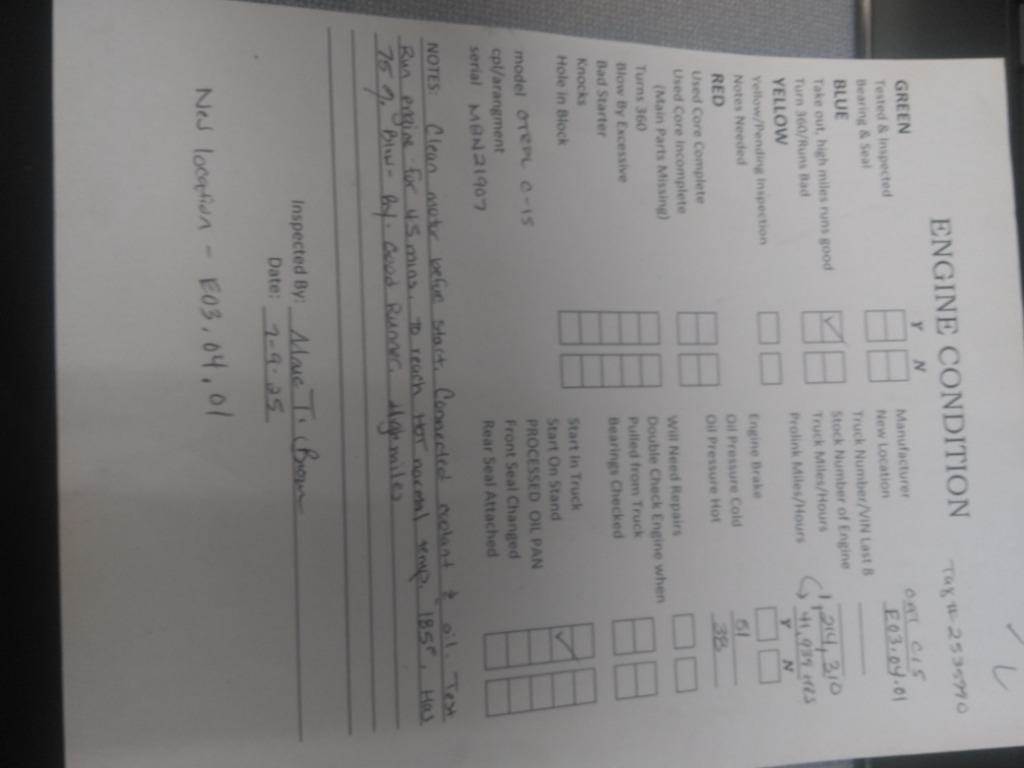 ENGINE CONDITION
Tag # 2535990
Y N
GREEN
Tested & Inspected
Bearing & Seal
BLUE
Take out, high miles runs good
Turn 360/Runs Bad
YELLOW
Yellow/Pending Inspection
Notes Needed
RED
Used Core Complete
Used Core Incomplete
(Main Parts Missing)
Turns 360
Blow By Excessive
Bad Starter
Knocks
Hole in Block
model C-15
cpl/arangment
serial MBN21907
Manufacturer CAT C15
New Location E03.04.01
Truck Number/VIN Last 8
Stock Number of Engine
Truck Miles/Hours 1,214,310
Prolink Miles/Hours 41,099 HRS
Y N
Engine Brake
Oil Pressure Cold 61
Oil Pressure Hot 38
Will Need Repairs
Double Check Engine when
Pulled from Truck
Bearings Checked
Start in Truck
Start On Stand
PROCESSED OIL PAN
Front Seal Changed
Rear Seal Attached
NOTES: Clean motor before start. Connected coolant & oil. Test
Run engine for 45 mins. to reach HOT normal temp. 185°, Has
75% Blow-By. Good Runner. miles
Inspected By:
Date: 7-9-25
New location - E03.04.01